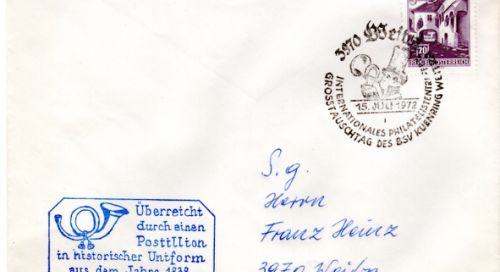 3970 Weitra
20
ÖSTERREICH
15. JULI 1972
1
INTERNATIONALES PHILATELISTENTREFFEN
GROSSTAUSCHTAG DES BSV KUENRING WEITRA
S. g.
Herrn
Franz Heinz
3970 Weitra
Überreicht
durch einen
Postillon
in historischer Uniform
aus dem Jahre 1838